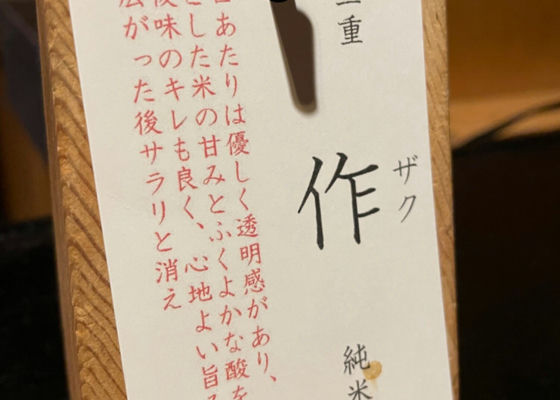 三重
ザク
作
純米
口あたりは優しく透明感があり、
とした米の甘みとふくよかな酸を
酸味のキレも良く、心地よい旨み
広がった後サラリと消え